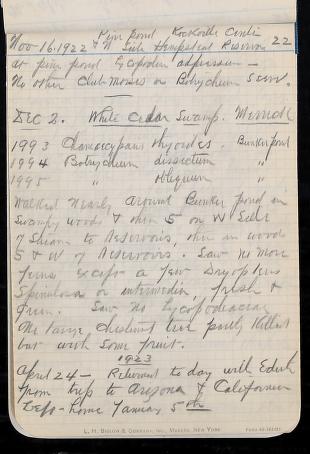 Pine pond Rockville Centre
Nov 16. 1922 & N Side Hempstead Reservoir 22
at pine pond Lycopodium adpressum –
No other Club Mosses or Botrychium seen.
Dec 2. White Cedar Swamp. Merrick
1993 Chamaecyparis thyoides. Bunker pond
1994 Botrychium dissectum "
1995 " obliquum "
Walked nearly around Bunker pond in
Swampy woods & then S on W Side
of Stream to Reservoirs, then in woods
S & W of Reservoirs. Saw no more
ferns except a few Dryopteris
Spinulosa or intermedia, fresh &
green. Saw no Lycopodiaceae
One large chestnut tree partly killed
but with some fruit.
1923
April 24 – Returned to day with Edith
from trip to Arizona & California
Left home January 5th
L. H. Biglow & Company, Inc., Makers, New York